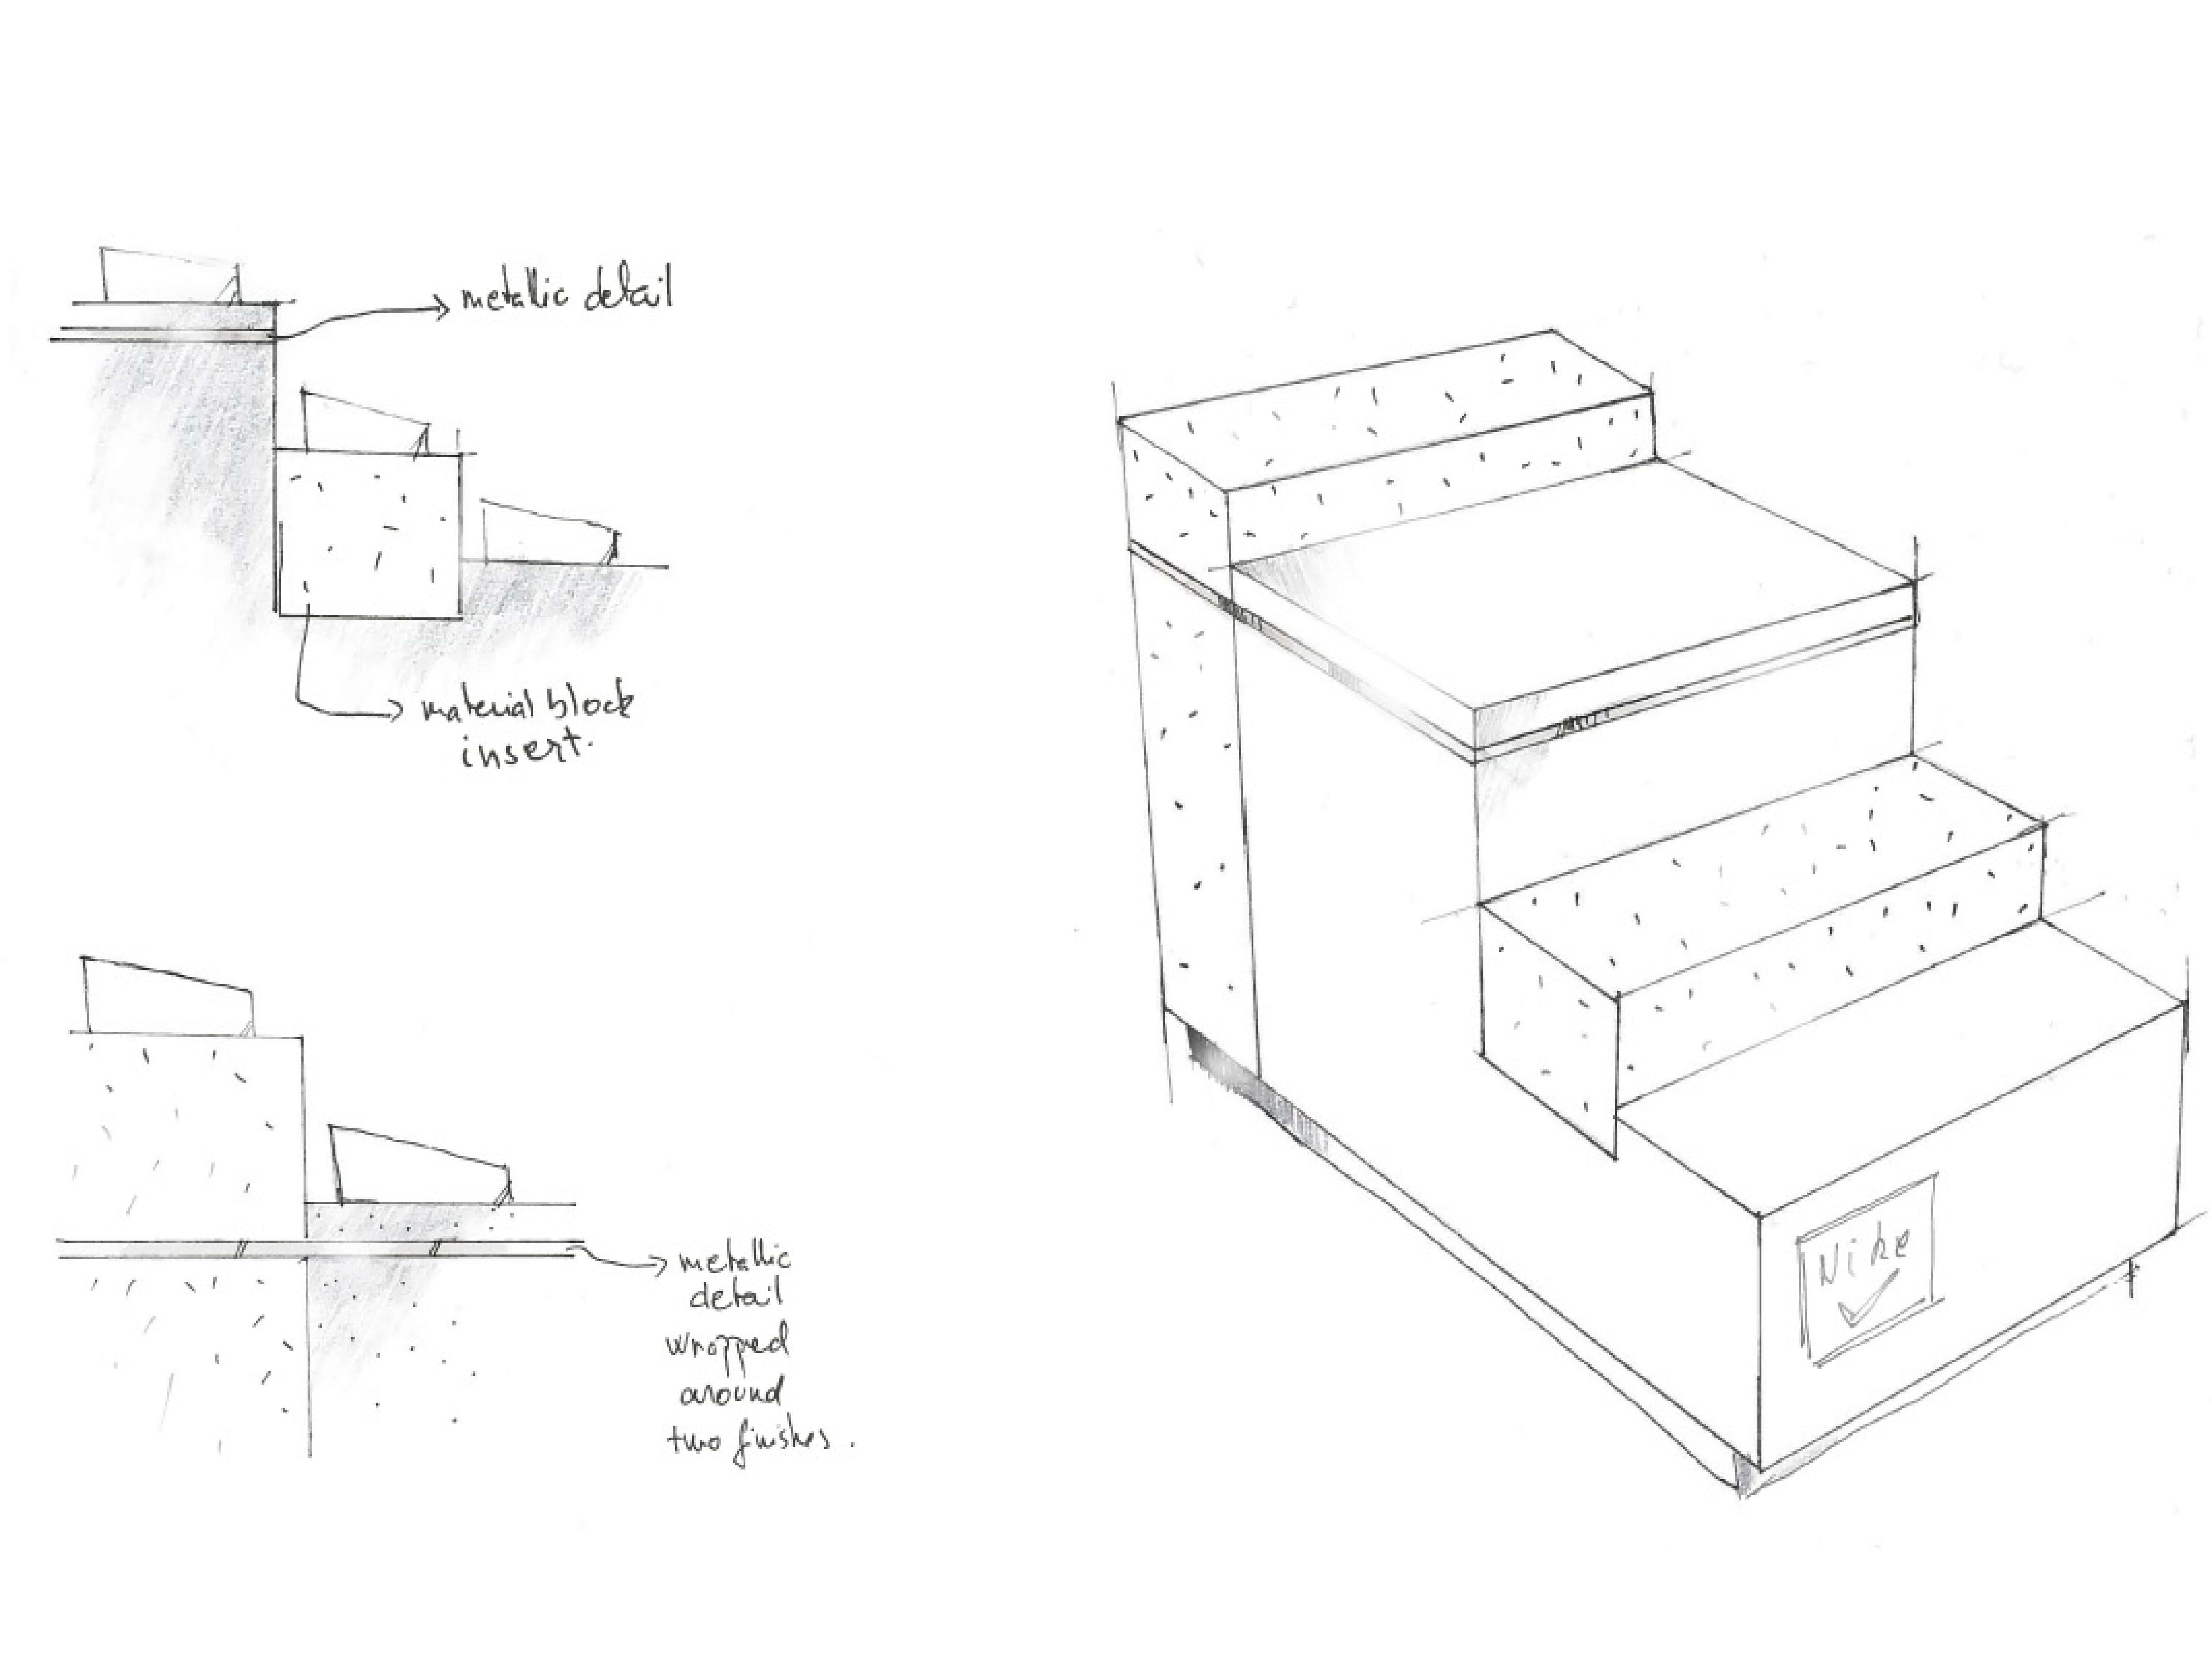 metallic detail
material block
insert.
metallic
detail
wrapped
around
two finishes.
Nike